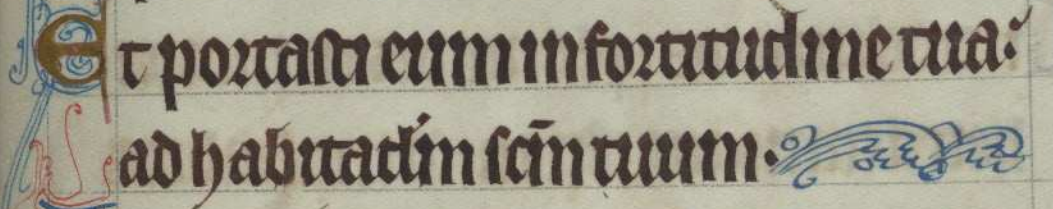 Et portasti eum in fortitudine tua:
ad habitac̄lm sc̄m tuum.